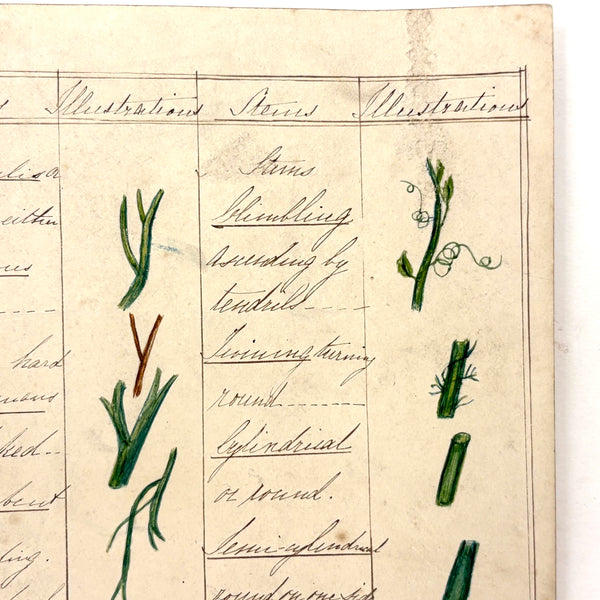 s Illustrations Stems Illustrations
lis a
either
ous
hard
nous
ked--
bent
ing.
Stems
Climbling
ascending by
tendrils----
Twining turning
round------
Cylindrical
or round.
Semi-cylindrical
round on one side